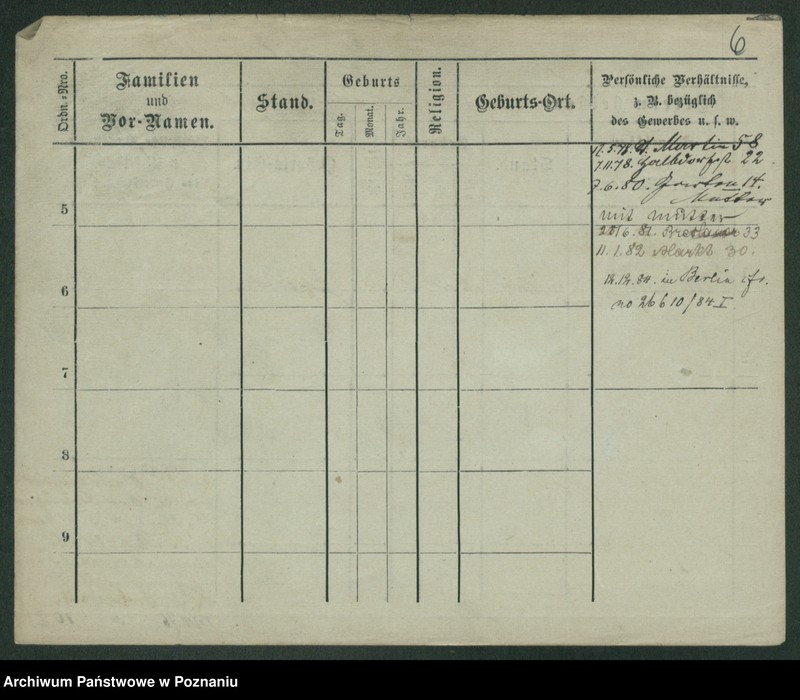 6
Ordn.-Nro.
Familien
und
Vor-Namen.
Stand.
Geburts
Tag.
Monat.
Jahr.
Religion.
Geburts-Ort.
Persönliche Verhältnisse,
z. B. bezüglich
des Gewerbes u. s. w.
St. Martin 58
7.11.78. Halbdorfst 22
9.6.80. Garten 14.
Mutter
5
mit Mutter
6. 81. 33
11.1.82 Markt 30.
6
12.12.84. in Berlin cfr.
no 26610/84 I
7
8
9
Archiwum Państwowe w Poznaniu